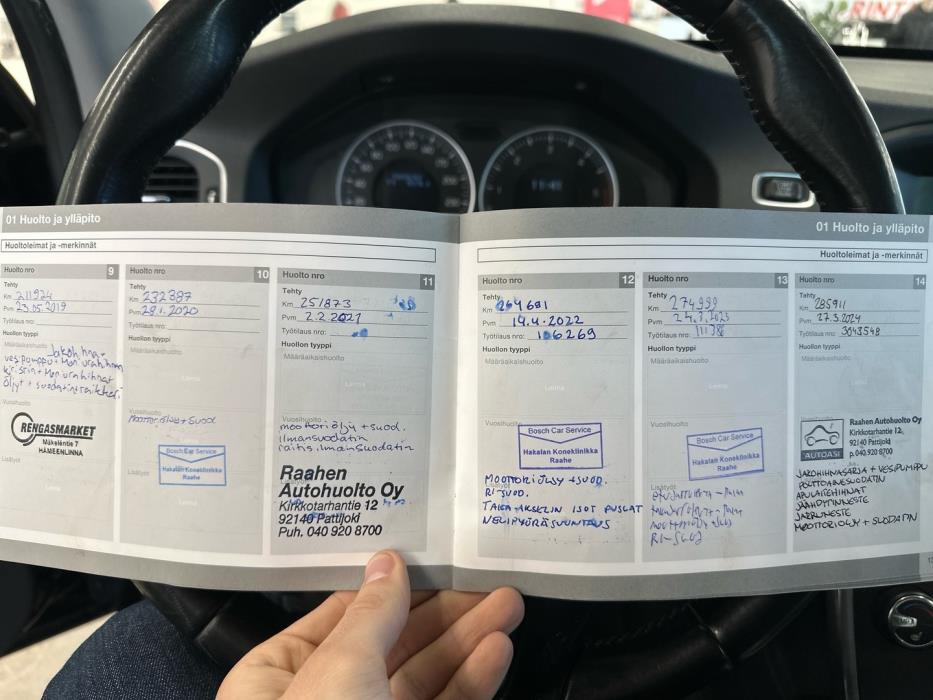 01 Huolto ja ylläpito
Huoltoleimat ja -merkinnät
Huolto nro 9
Tehty
Km 211924
Pvm 23.05.2019
Työtilaus nro:
Huollon tyyppi
Määräaikaishuolto
Jakohihna+
vesipumppu+
öljyt + suodatin+raikkari
Vuosihuolto
RENGASMARKET
Mäkeläntie 7
HÄMEENLINNA
Lisätyöt
Huolto nro 10
Tehty
Km 232387
Pvm 28.1.2020
Työtilaus nro:
Huollon tyyppi
Määräaikaishuolto
Leima
Vuosihuolto
Moottoriöljy + Suod
Bosch Car Service
Hakalan Konekliinikka
Raahe
Lisätyöt
Huolto nro 11
Tehty
Km 251873
Pvm 2.2.2021
Työtilaus nro:
Huollon tyyppi
Määräaikaishuolto
Leima
Vuosihuolto
moottoriöljy + suod.
ilmansuodatin
raitis.ilmansuodatin
Raahen
Autohuolto Oy
Kirkkotarhantie 12
92140 Pattijoki
Puh. 040 920 8700
01 Huolto ja ylläpito
Huoltoleimat ja -merkinnät
Huolto nro 12
Tehty
Km 264681
Pvm 19.4.2022
Työtilaus nro: 106269
Huollon tyyppi
Määräaikaishuolto
Vuosihuolto
Bosch Car Service
Hakalan Konekliinikka
Raahe
Lisätyöt
MOOTTORIÖLJY + SUOD.
RI-SUOD.
TAKA-AKSELIN ISOT PUSLAT
NELIPYÖRÄSUUNTAUS
Huolto nro 13
Tehty
Km 274999
Pvm 24.7.2023
Työtilaus nro:
Huollon tyyppi
Määräaikaishuolto
Leima
Vuosihuolto
Bosch Car Service
Hakalan Konekliinikka
Raahe
Lisätyöt
RI-SUOD
Huolto nro 14
Tehty
Km 285911
Pvm 27.3.2024
Työtilaus nro: 3043548
Huollon tyyppi
Määräaikaishuolto
Leima
Vuosihuolto
AUTOASI
Raahen Autohuolto Oy
Kirkkotarhantie 12,
92140 Pattijoki
p.040 920 8700
JAKOHIHNASARJA + VESIPUMPPU
POLTTOAINESUODATIN
APULAITEHIHNAT
JÄÄHDYTINNESTE
JARRUNESTE
MOOTTORIÖLJY + SUODATIN
11:41